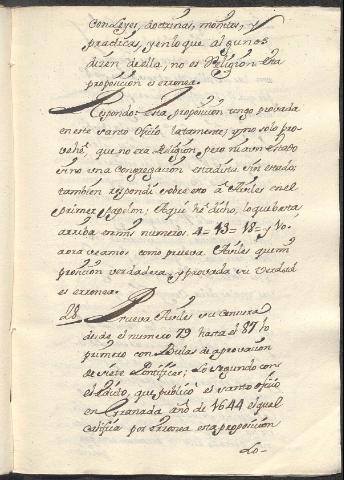 con Leyes, doctrinas, monitas, y
practicas, y en lo que algunos
dizen de ella, no es Religion. Esta
proposicion es erronea.
Respondo: Esta proposicion tengo provada
en este santo Oficio latamente; y no solo pro
vehè, que no era Religion, pero ni aun estado
sino una Congregacion estadista sin estado;
tambien respondi sobre esto à Aviles en el
primer papelon; Aqui hè dicho, lo que basta
arriba en mis numeros 4=13=18= y
aora veamos como prueva Aviles que mi
proposicion verdadera, y provada su verdad
es erronea.
28. Prueva Aviles su censura
desde el numero 79 hasta el 87 lo
primero con Bulas de aprovacion
de siete Pontifices; Lo segundo con
el Edicto, que publicò el santo oficio
en Granada año de 1644 el qual
califica por erronea esta proposicion
Lo-